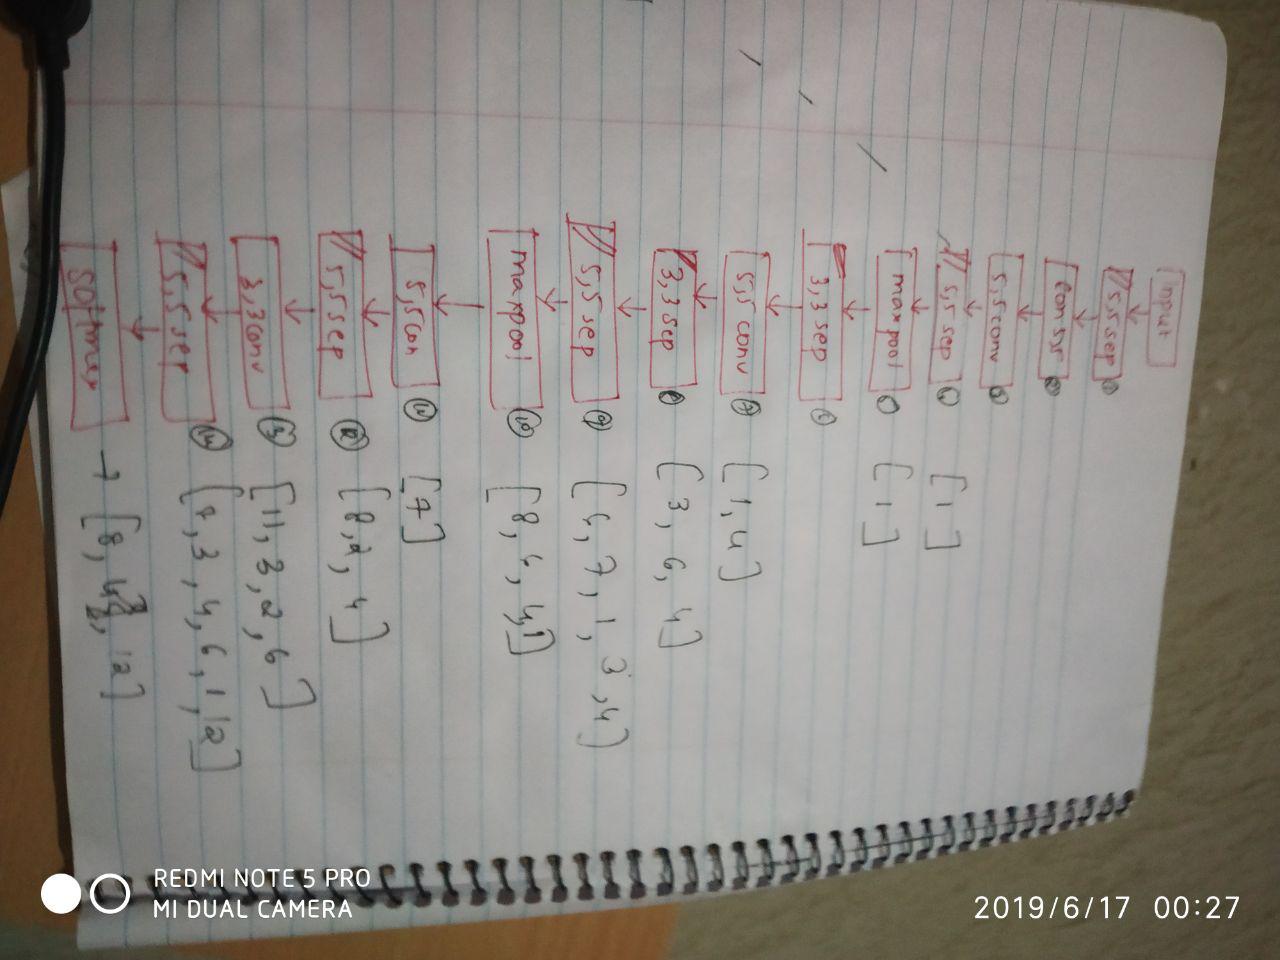 Input
5,5 sep
5,5 conv
5,5 sep [1]
maxpool [1]
3,3 sep
5,5 conv 7 [1,4]
3,3 sep [3, 6, 4]
5,5 sep 9 7, 1, 3, 4]
maxpool 10 [8,
5,5 con 11 [7]
5,5 sep 4]
3,3 conv 13 [11, 3, 2, 6]
5,5 sep 14 3, 4, 6, 1, 12]
→ [8, 12]
REDMI NOTE 5 PRO
MI DUAL CAMERA
2019/6/17 00:27